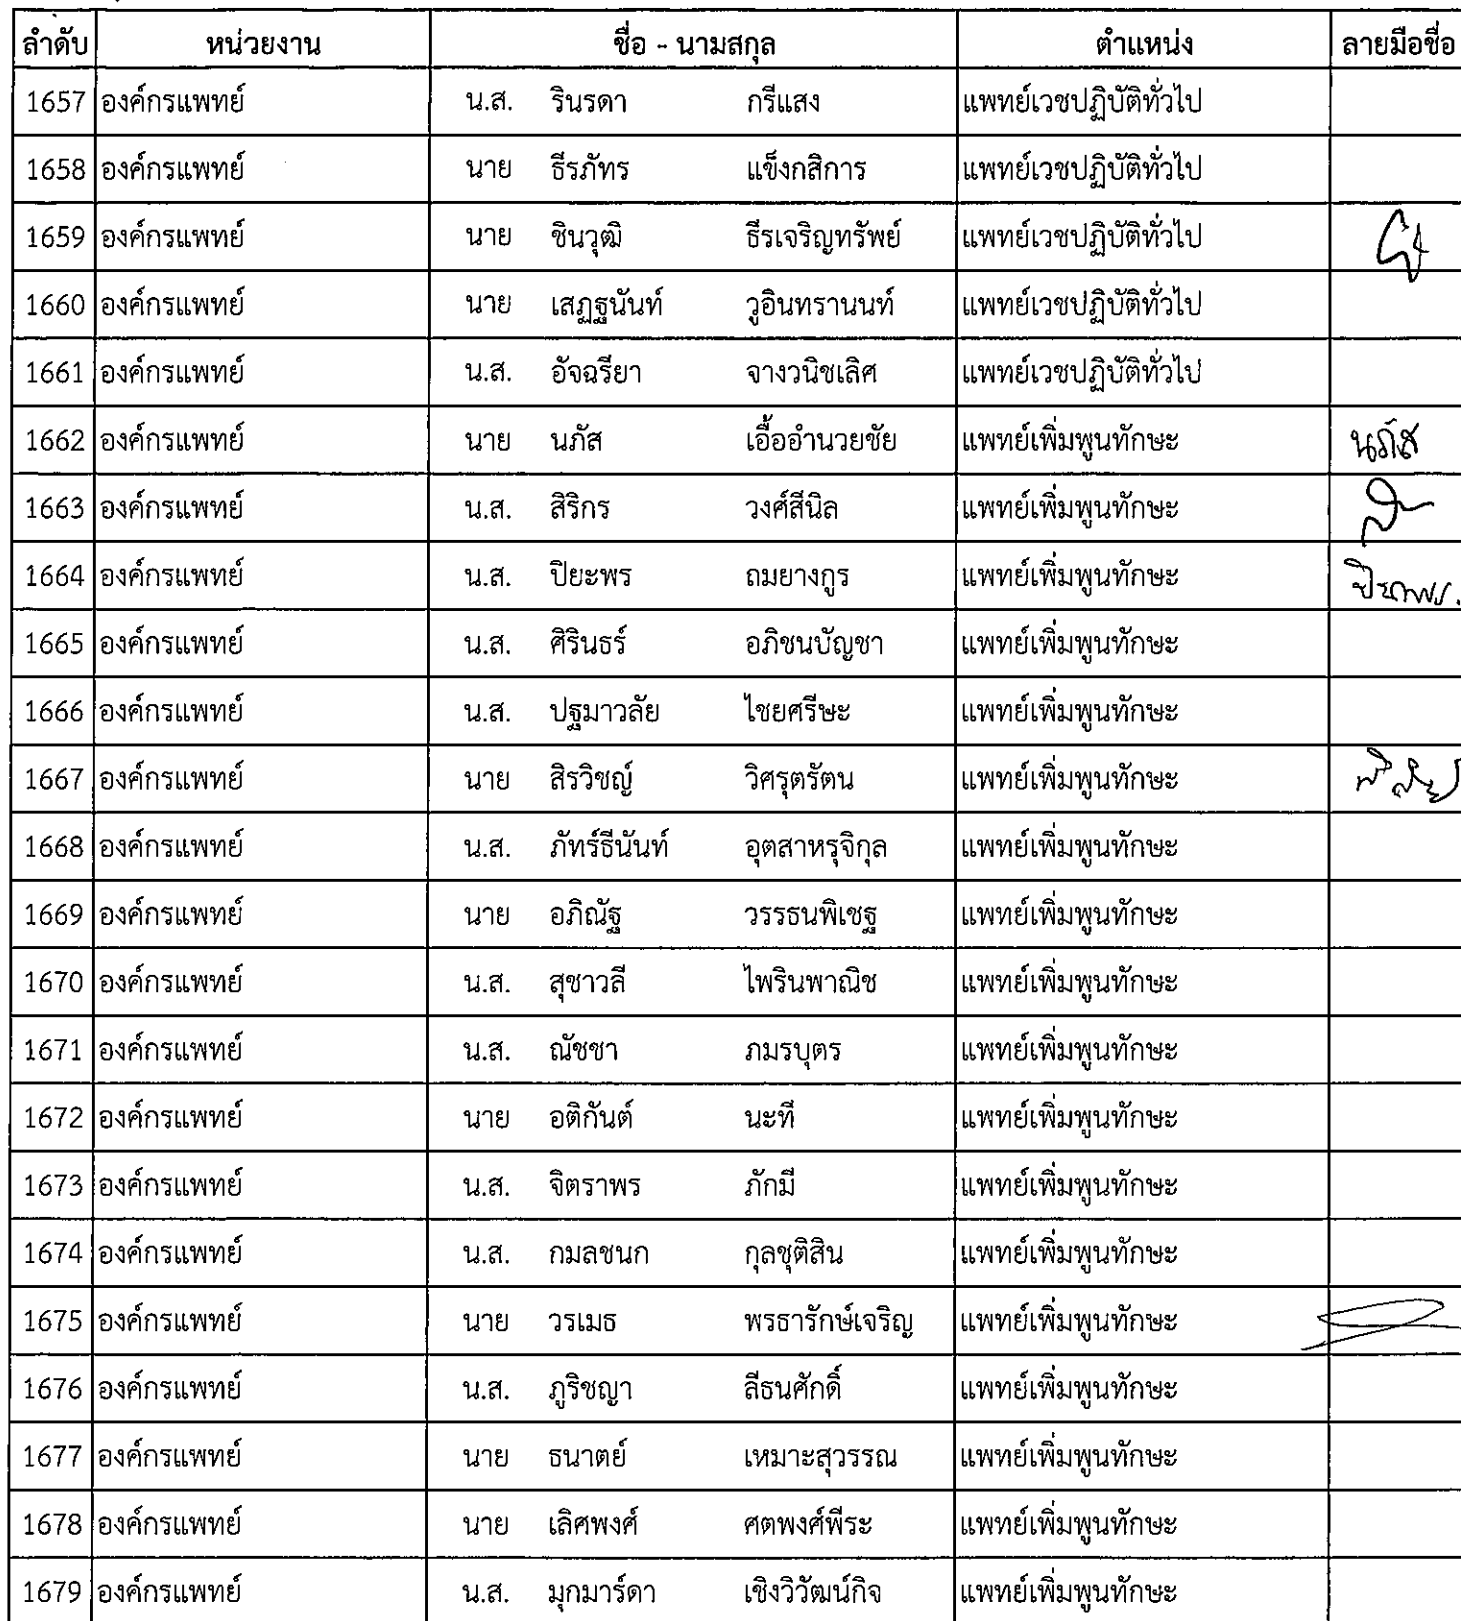 ลำดับ หน่วยงาน ชื่อ - นามสกุล ตำแหน่ง ลายมือชื่อ
1657 องค์กรแพทย์ น.ส. รินรดา กรีแสง แพทย์เวชปฏิบัติทั่วไป
1658 องค์กรแพทย์ นาย ธีรภัทร แข็งกสิการ แพทย์เวชปฏิบัติทั่วไป
1659 องค์กรแพทย์ นาย ชินวุฒิ ธีรเจริญทรัพย์ แพทย์เวชปฏิบัติทั่วไป
1660 องค์กรแพทย์ นาย เสฏฐนันท์ วูอินทรานนท์ แพทย์เวชปฏิบัติทั่วไป
1661 องค์กรแพทย์ น.ส. อัจฉรียา จางวนิชเลิศ แพทย์เวชปฏิบัติทั่วไป
1662 องค์กรแพทย์ นาย นภัส เอื้ออำนวยชัย แพทย์เพิ่มพูนทักษะ นภัส
1663 องค์กรแพทย์ น.ส. สิริกร วงศ์สีนิล แพทย์เพิ่มพูนทักษะ
1664 องค์กรแพทย์ น.ส. ปิยะพร ถมยางกูร แพทย์เพิ่มพูนทักษะ ปิยะพร.
1665 องค์กรแพทย์ น.ส. ศิรินธร์ อภิชนบัญชา แพทย์เพิ่มพูนทักษะ
1666 องค์กรแพทย์ น.ส. ปฐมาวลัย ไชยศรีษะ แพทย์เพิ่มพูนทักษะ
1667 องค์กรแพทย์ นาย สิรวิชญ์ วิศรุตรัตน แพทย์เพิ่มพูนทักษะ
1668 องค์กรแพทย์ น.ส. ภัทร์ธีนันท์ อุตสาหรุจิกุล แพทย์เพิ่มพูนทักษะ
1669 องค์กรแพทย์ นาย อภิณัฐ วรรธนพิเชฐ แพทย์เพิ่มพูนทักษะ
1670 องค์กรแพทย์ น.ส. สุชาวลี ไพรินพาณิช แพทย์เพิ่มพูนทักษะ
1671 องค์กรแพทย์ น.ส. ณัชชา ภมรบุตร แพทย์เพิ่มพูนทักษะ
1672 องค์กรแพทย์ นาย อติกันต์ นะที แพทย์เพิ่มพูนทักษะ
1673 องค์กรแพทย์ น.ส. จิตราพร ภักมี แพทย์เพิ่มพูนทักษะ
1674 องค์กรแพทย์ น.ส. กมลชนก กุลชุติสิน แพทย์เพิ่มพูนทักษะ
1675 องค์กรแพทย์ นาย วรเมธ พรธารักษ์เจริญ แพทย์เพิ่มพูนทักษะ
1676 องค์กรแพทย์ น.ส. ภูริชญา ลีธนศักดิ์ แพทย์เพิ่มพูนทักษะ
1677 องค์กรแพทย์ นาย ธนาตย์ เหมาะสุวรรณ แพทย์เพิ่มพูนทักษะ
1678 องค์กรแพทย์ นาย เลิศพงศ์ ศตพงศ์พีระ แพทย์เพิ่มพูนทักษะ
1679 องค์กรแพทย์ น.ส. มุกมาร์ดา เชิงวิวัฒน์กิจ แพทย์เพิ่มพูนทักษะ